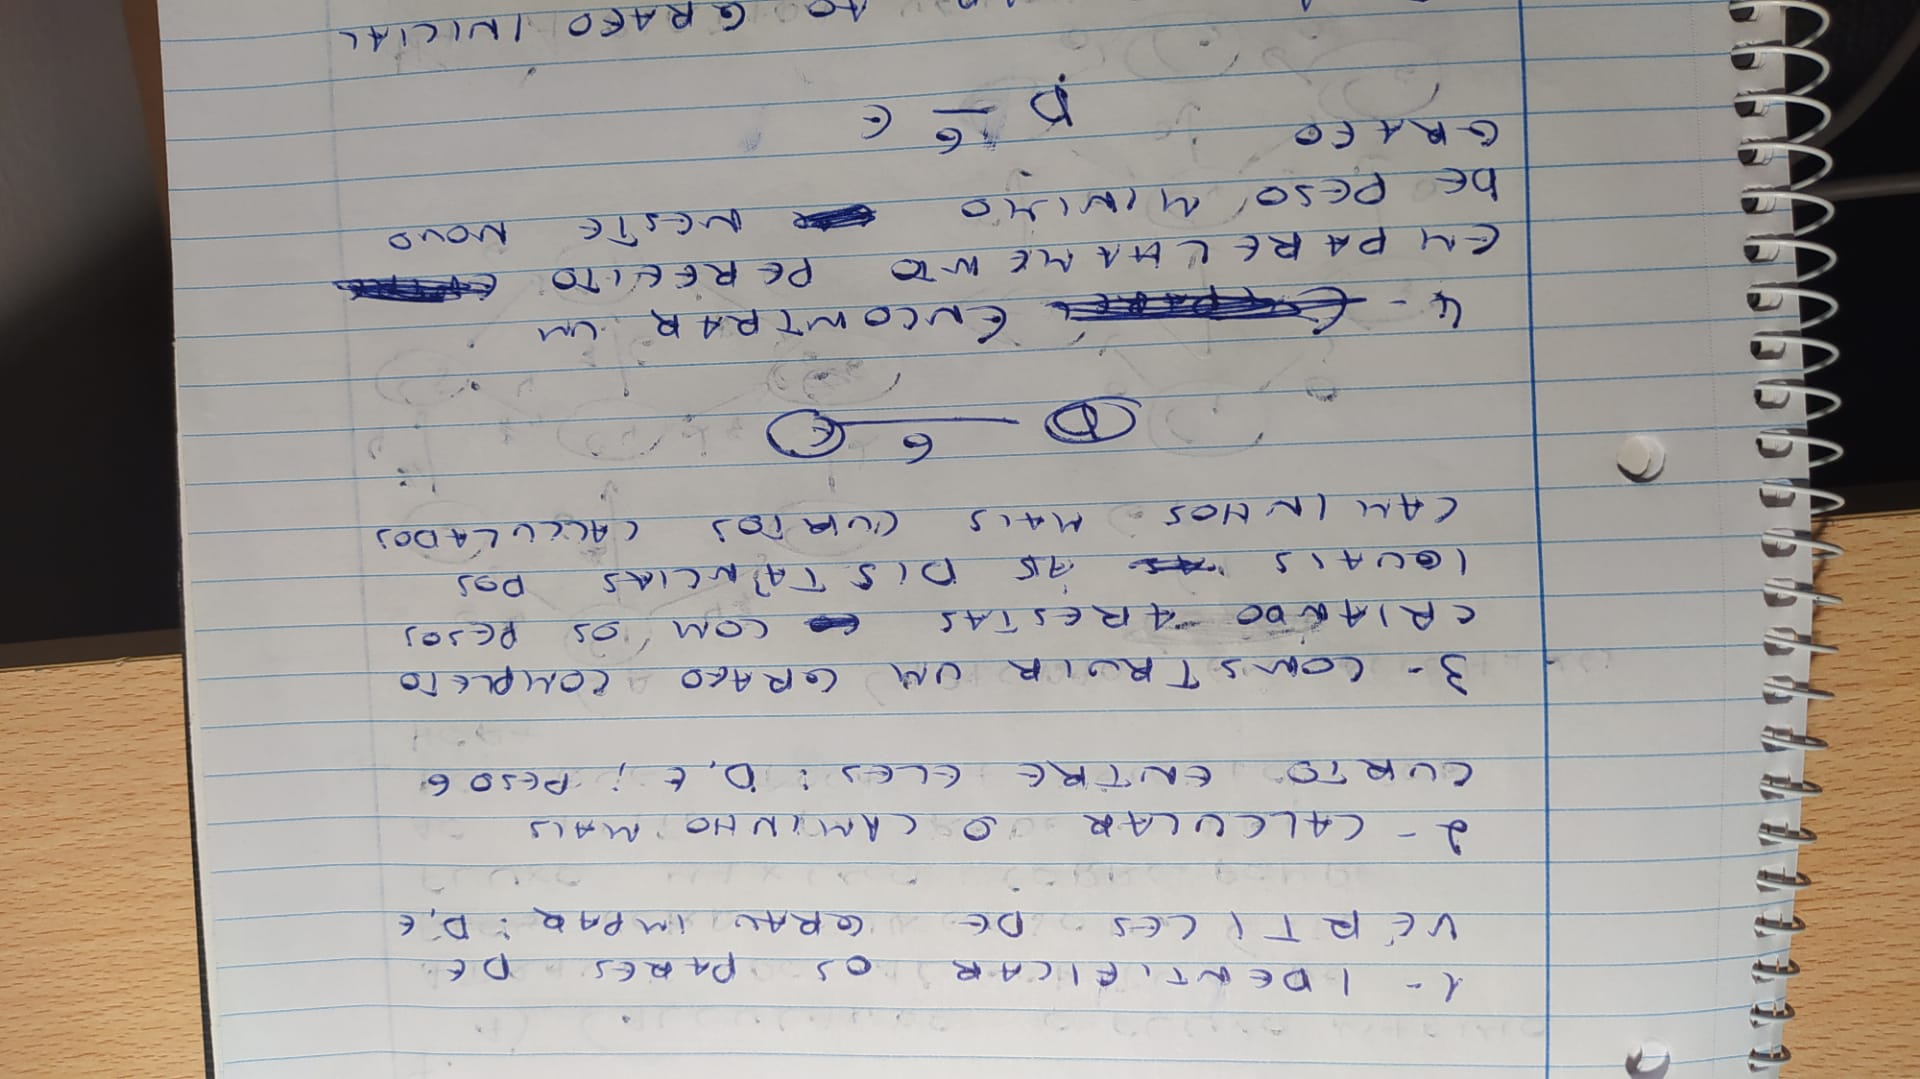 1- IDENTIFICAR OS PARES DE
VÉRTICES DE GRAU IMPAR: D, E
2- CALCULAR O CAMINHO MAIS
CURTO ENTRE ELES: D, E; PESO 6
3- CONSTRUIR UM GRAFO COMPLETO
CRIANDO ARESTAS COM OS PESOS
IGUAIS ÀS DISTÂNCIAS DOS
CAMINHOS MAIS CURTOS CALCULADOS
D 6 E
4- ENCONTRAR UM
EMPARELHAMENTO PERFEITO
DE PESO MINIMO NESTE NOVO
GRAFO
D 6 E
AO GRAFO INICIAL